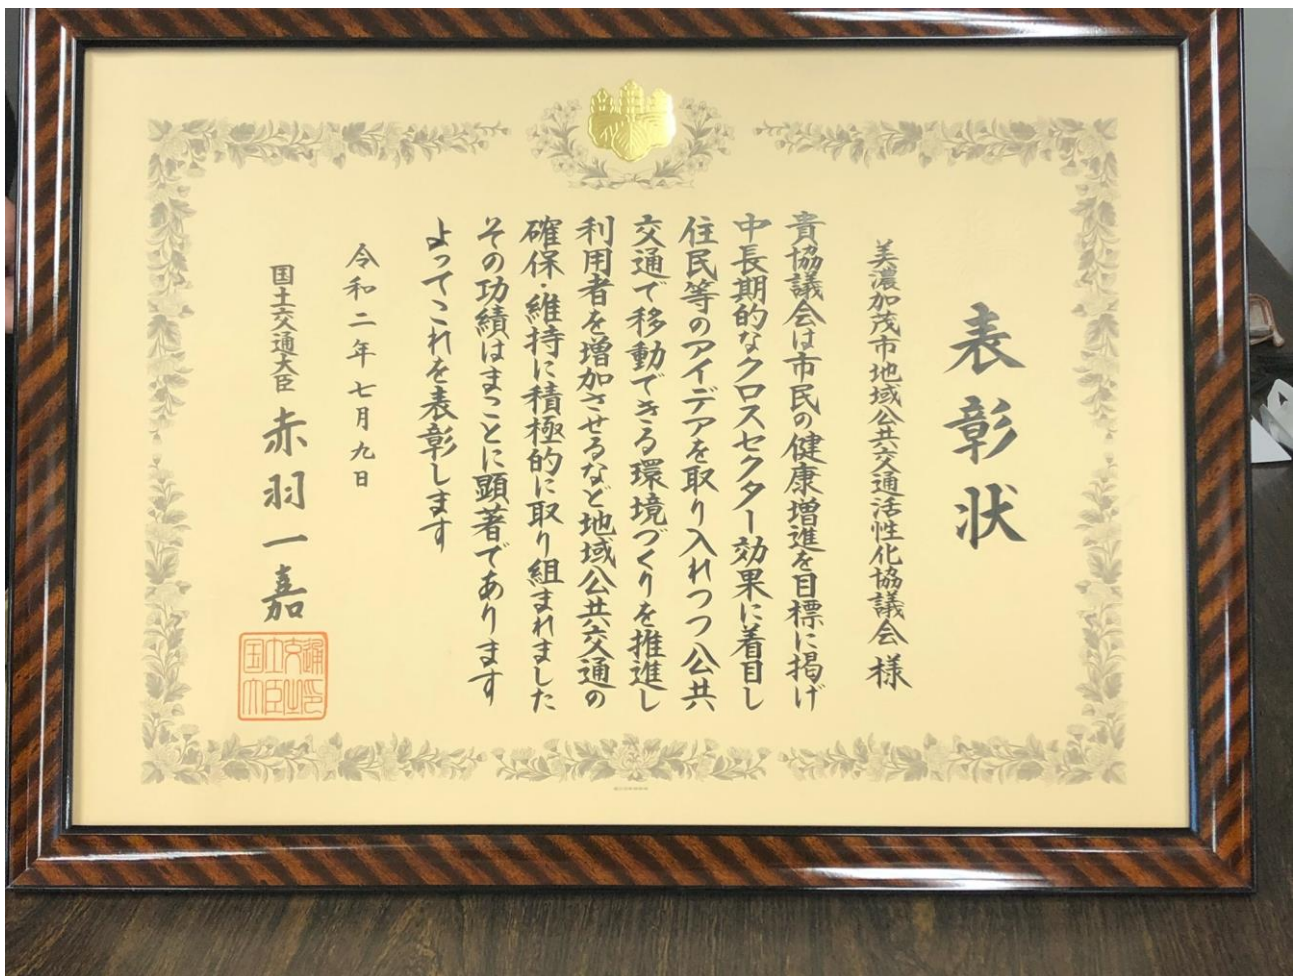 表彰状
美濃加茂市地域公共交通活性化協議会 様
貴協議会は市民の健康増進を目標に掲げ
中長期的なクロスセクター効果に着目し
住民等のアイデアを取り入れつつ公共
交通で移動できる環境づくりを推進し
利用者を増加させるなど地域公共交通の
確保・維持に積極的に取り組まれました
その功績はまことに顕著であります
よってこれを表彰します
令和二年七月九日
国土交通大臣 赤羽一嘉
国土交通大臣之印